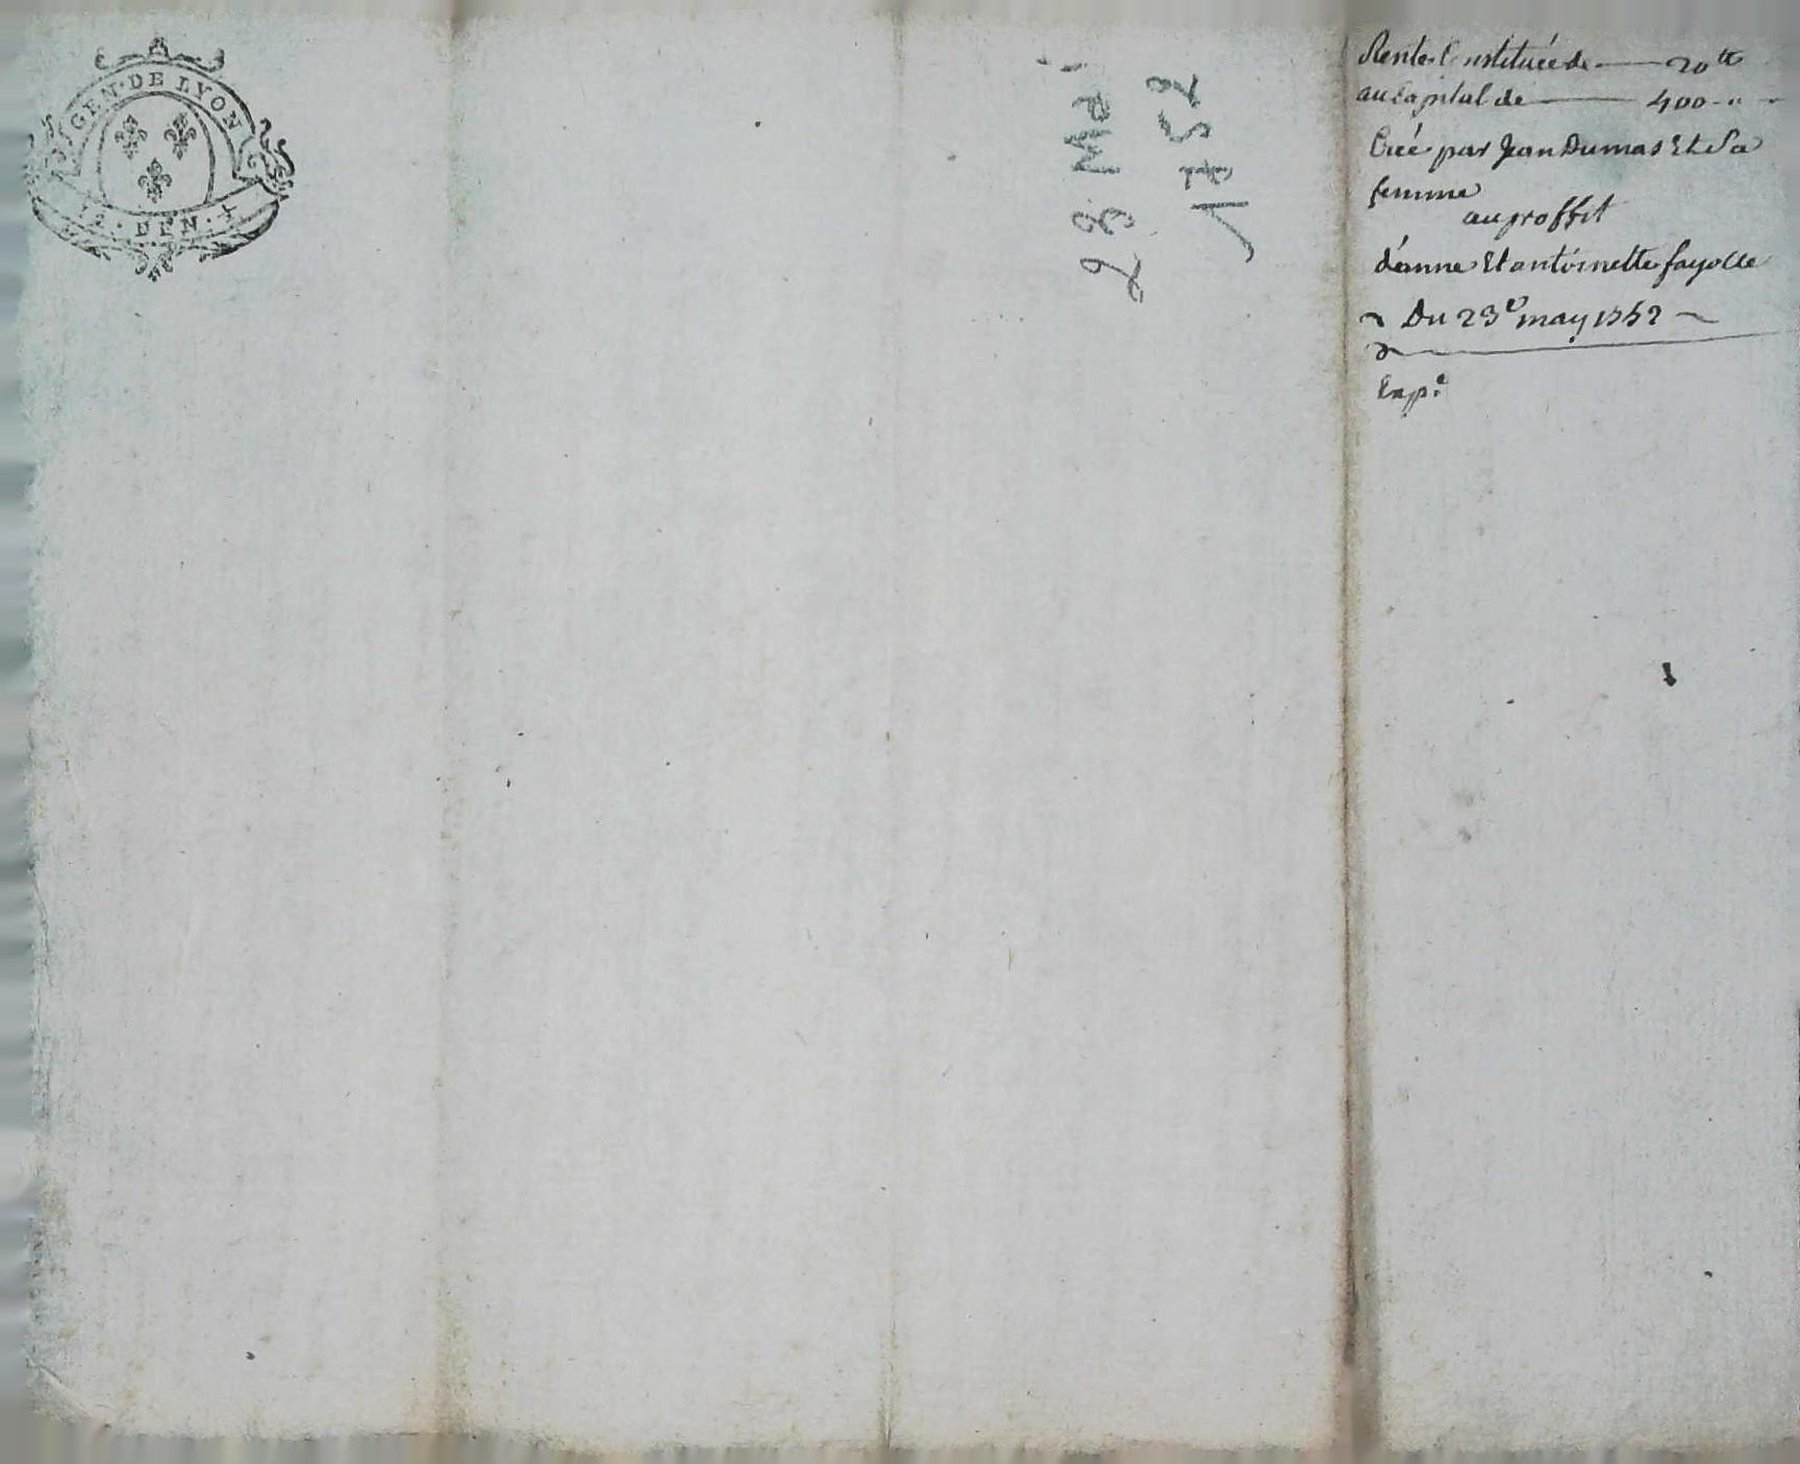 GEN·DE LYON
DEN·
23 Mai
1752
Rente Constituée de —— 20 tt
au Capital de —— 400 - "
Créé par Jean Dumas Et Sa
femme
au proffit
d'anne Et antoinette fayolle
~ Du 23e may 1752 ~
Exp.e